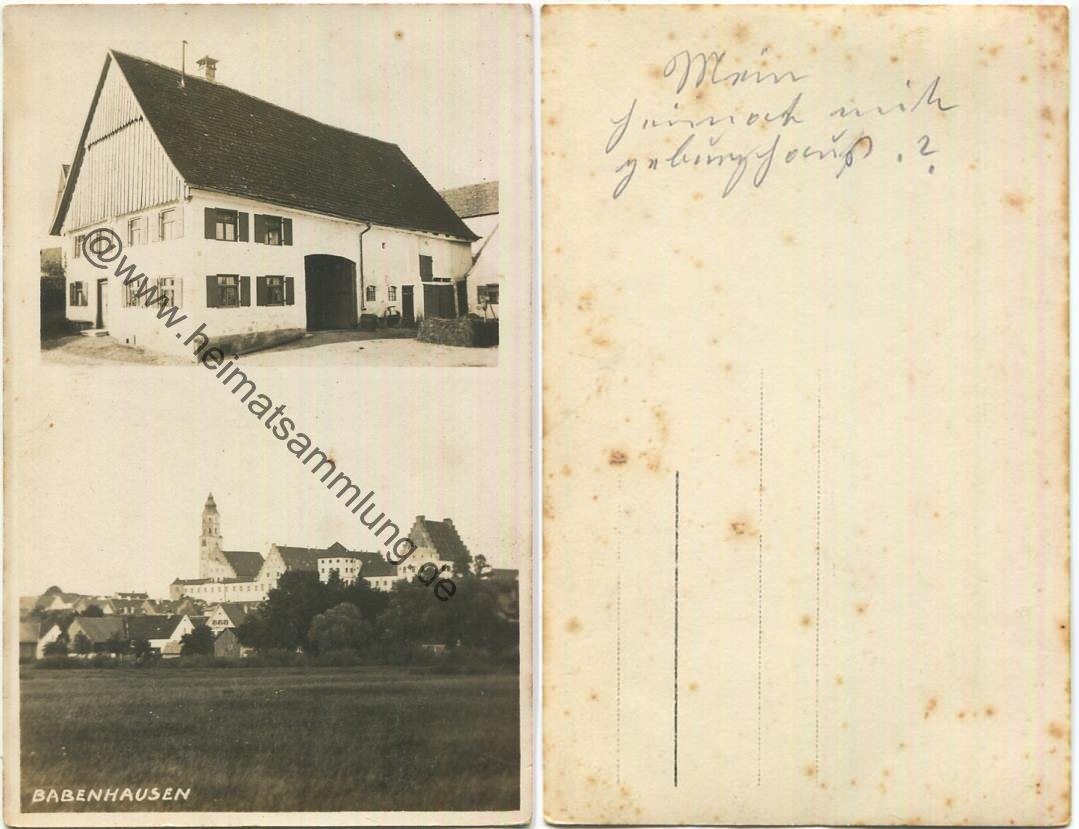 @www.heimatsammlung.de
BABENHAUSEN
Mein
heimat mit
geburzhauß . ?